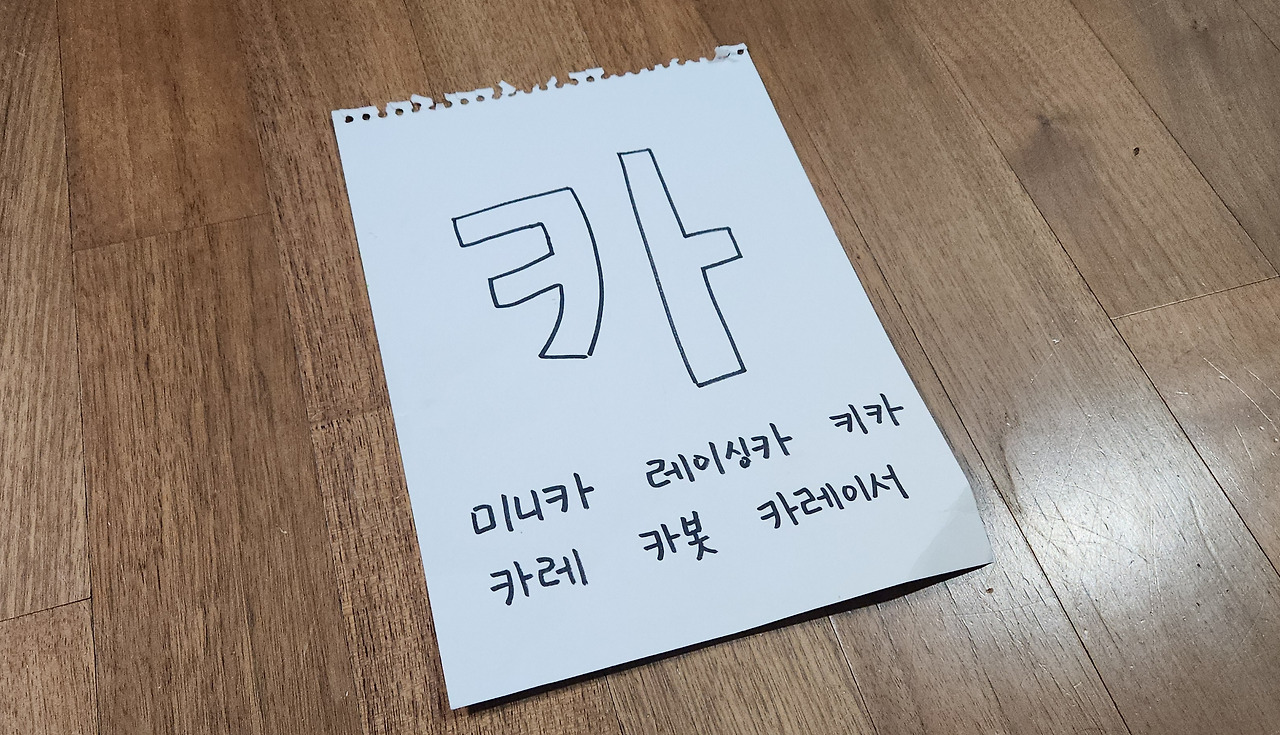 카
미니카 레이싱카 키카
카레 카봇 카레이서